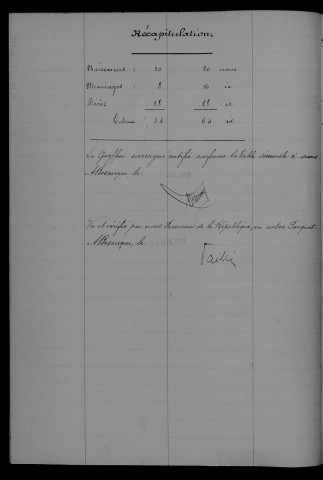 Récapitulation.
Naissances : 20 20 noms
Mariages : 8 16 id
Décès : 28 28 id
Totaux : 56 64 id
Le Greffier soussigné certifie conforme la table décennale ci-dessus
A Besançon, le
Vu et vérifié par nous Procureur de la République, en notre Parquet
A Besançon, le